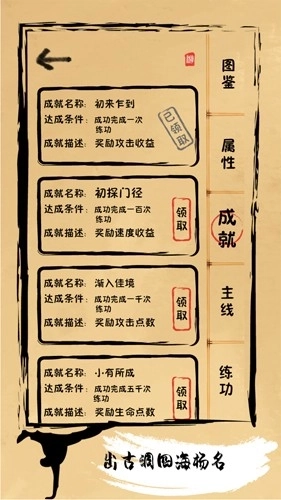 图鉴
属性
成就
主线
练功
成就名称：初来乍到
达成条件：成功完成一次
练功
成就描述：奖励攻击收益
已领取
成就名称：初探门径
达成条件：成功完成一百次
练功
成就描述：奖励速度收益
领取
成就名称：渐入佳境
达成条件：成功完成一千次
练功
成就描述：奖励攻击点数
领取
成就名称：小有所成
达成条件：成功完成五千次
练功
成就描述：奖励生命点数
领取